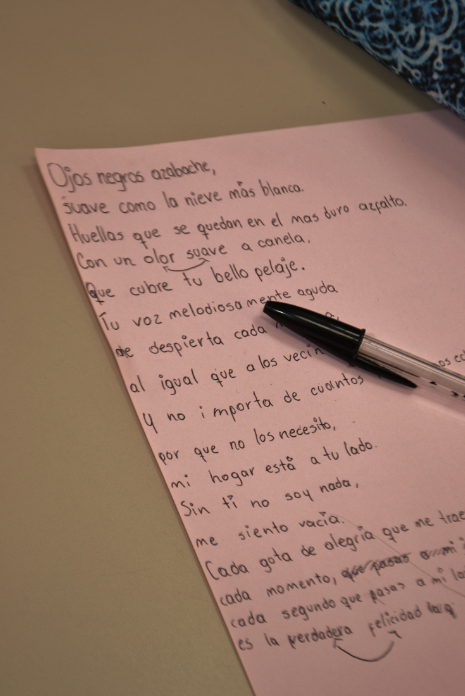 Ojos negros azabache,
suave como la nieve más blanca.
Huellas que se quedan en el mas duro asfalto.
Con un olor suave a canela,
Que cubre tu bello pelaje.
Tu voz melodiosamente aguda
me despierta cada
al igual que a los
y no importa de cuantos
por que no los necesito,
mi hogar está a tu lado.
Sin ti no soy nada,
me siento vacía.
Cada gota de alegria que me
cada momento, que pasas a mi
cada segundo que pasas a mi
es la verdadera felicidad